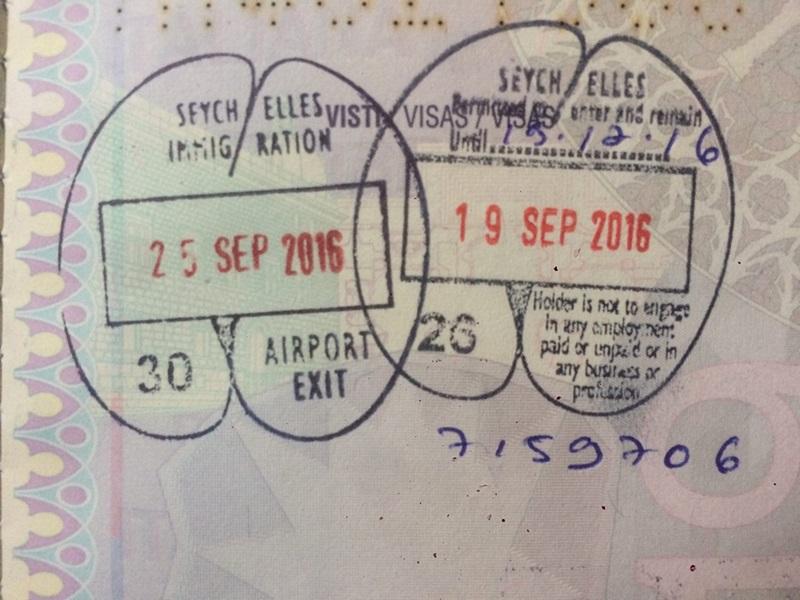 SEYCHELLES
IMMIGRATION
25 SEP 2016
30
AIRPORT
EXIT
VISTI VISAS / VISAS
SEYCHELLES
Permitted to enter and remain
Until 15.12.16
19 SEP 2016
26
Holder is not to engage
in any employment
paid or unpaid or in
any business or
profession
7159706